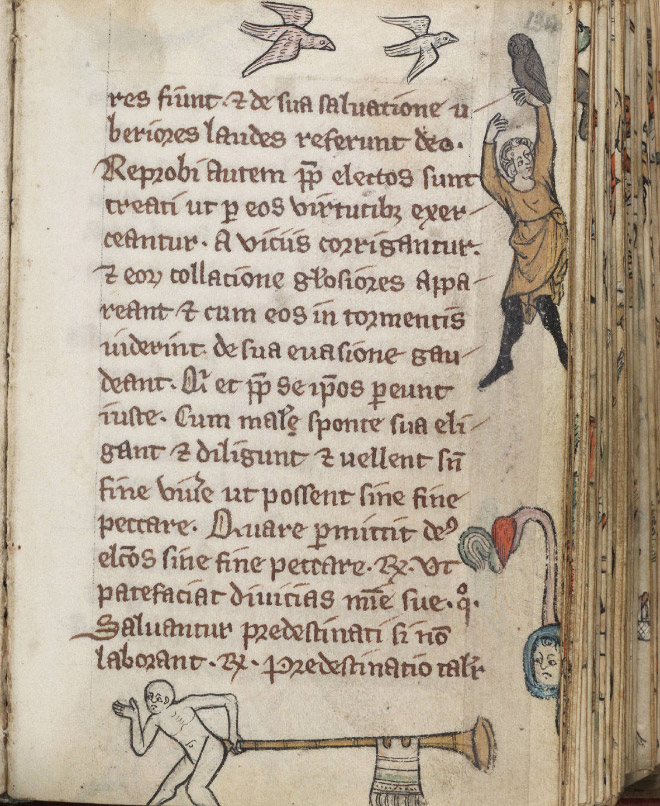 res fiunt. ⁊ de sua saluatione u
beriores laudes referunt deo.
Reprobi autem pp̄ electos sunt
creati ut ꝑ eos virtutibꝫ exer
ceantur. A viciis corrigantur.
⁊ eoꝝ collacione gl̄osiores appa
reant ⁊ cum eos in tormentis
uiderint. de sua euasione gau
deant. et pp̄ se ip̄os ꝑeunt
iuste. Cum male sponte sua eli
gant ⁊ diligunt ⁊ uellent sn̄
fine viu'e ut possent sine fine
peccare. Quare ꝑmittit deꝰ
elc̄os sine fine peccare. R̷. Vt
patefaciat diuicias mīe sue. q̊.
Saluantur predestinati si nō
laborant. R̷. Predestinatio tal'r